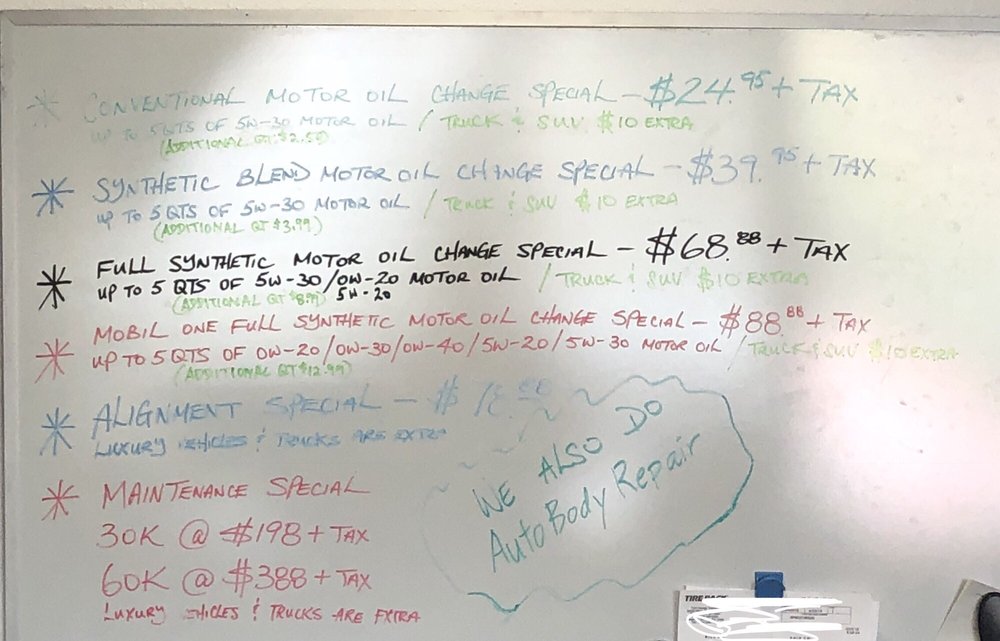 * CONVENTIONAL MOTOR OIL CHANGE SPECIAL - $24.95 + TAX
UP TO 5 QTS OF 5W-30 MOTOR OIL / TRUCK & SUV $10 EXTRA
(ADDITIONAL QT $2.50)
* SYNTHETIC BLEND MOTOR OIL CHANGE SPECIAL - $39.95 + TAX
UP TO 5 QTS OF 5W-30 MOTOR OIL / TRUCK & SUV $10 EXTRA
(ADDITIONAL QT $3.99)
* FULL SYNTHETIC MOTOR OIL CHANGE SPECIAL - $68.88 + TAX
UP TO 5 QTS OF 5W-30/0W-20 MOTOR OIL / TRUCK & SUV $10 EXTRA
(ADDITIONAL QT $8.99) 5W-20
* MOBIL ONE FULL SYNTHETIC MOTOR OIL CHANGE SPECIAL - $88.88 + TAX
UP TO 5 QTS OF 0W-20/0W-30/0W-40/5W-20/5W-30 MOTOR OIL / TRUCK & SUV $10 EXTRA
(ADDITIONAL QT $12.99)
* ALIGNMENT SPECIAL - $
LUXURY VEHICLES & TRUCKS ARE EXTRA
WE ALSO DO
AutoBody Repair
* MAINTENANCE SPECIAL
30K @ $198 + TAX
60K @ $388 + TAX
LUXURY VEHICLES & TRUCKS ARE EXTRA
TIRE RACK